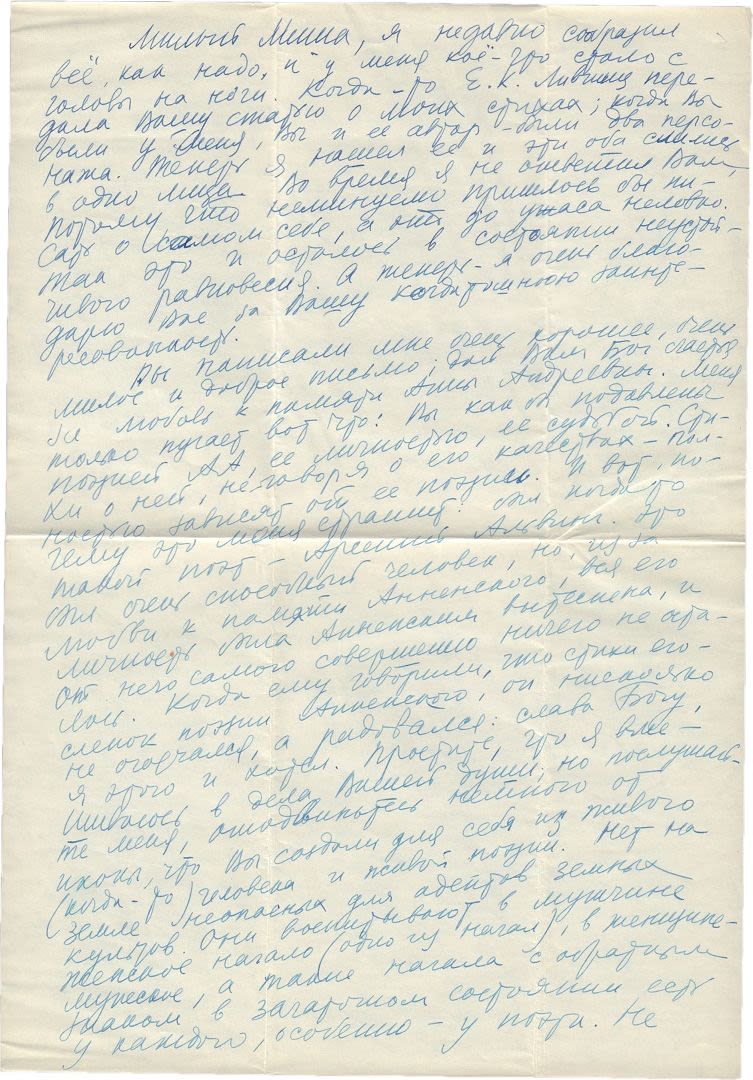 Милый Миша, я недавно сообразил
всё, как надо, и у меня кое-что стало с
головы на ноги. Когда-то Е.К. Лившиц пере-
дала Вашу статью о моих стихах; когда Вы
были у меня, Вы и её автор – были два персо-
нажа. Теперь я нашел её и эти оба слились
в одно лицо. Во время я не ответил Вам,
потому что неминуемо пришлось бы пи-
сать о самом себе, а это до ужаса неловко.
Так это и осталось в состоянии неустой-
чивого равновесия. А теперь – я очень благо-
дарю Вас за Вашу когдатошнюю заинте-
ресованность.
Вы написали мне очень хорошее, очень
милое и доброе письмо, дай Вам Бог счастья
за любовь к памяти Анны Андреевны. Меня
только пугает вот что: Вы как бы подавлены
поэзией АА, ее личностью, ее судьбой. Сти-
хи о ней, не говоря о его качествах – пол-
ностью зависят от ее поэзии. И вот, по-
чему это меня страшит: был когда-то
такой поэт – Арсений Альвинг. Это
был очень способный человек, но, из за
любви к памяти Анненского, вся его
личность была Анненским вытеснена, и
от него самого совершенно ничего не оста-
лось. Когда ему говорили, что стихи его –
слепок поэзии Анненского, он нисколько
не огорчался, а радовался: слава Богу,
я этого и хотел. Простите, что я вме-
шиваюсь в дела Вашей души, но послушай-
те меня, отодвиньтесь немного от
иконы, что Вы создали для себя из живого
(когда-то) человека и живой поэзии. Нет на
земле неопасных для адептов земных
культов. Они воспитывают в мужчине
женское начало (одно из начал), в женщине –
мужское, а такие начала с обратным
знаком в зачаточном состоянии есть
у каждого, особенно – у поэта. Не